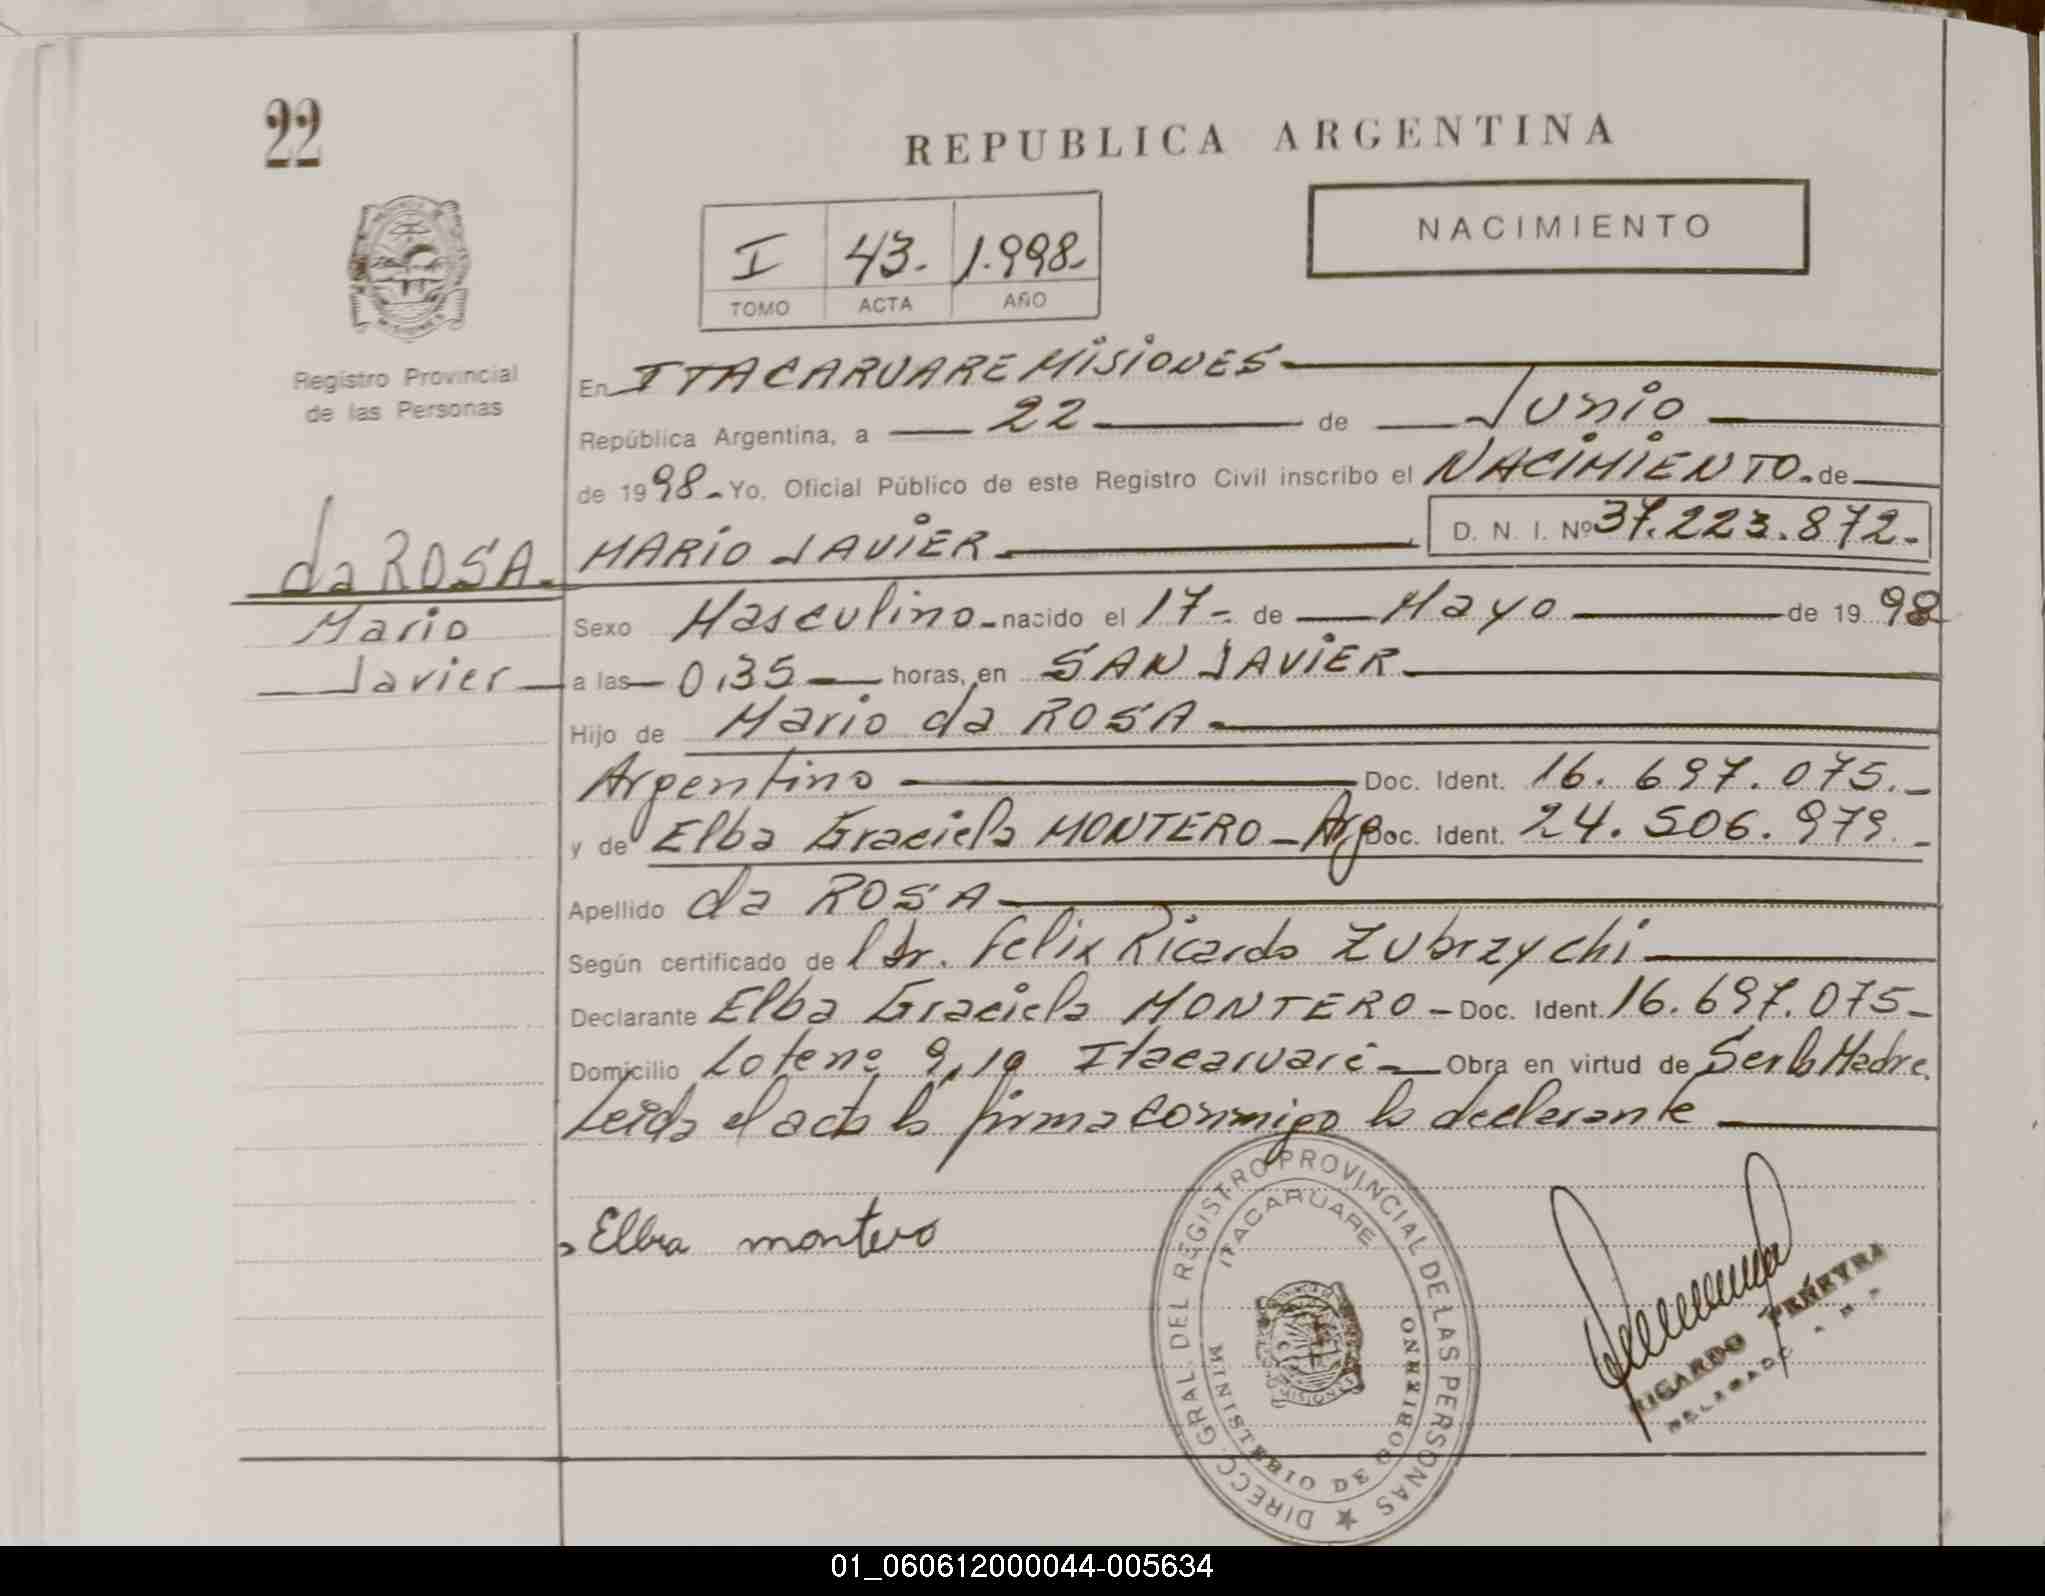 22
REPUBLICA ARGENTINA
NACIMIENTO
I 43. 1.998.
TOMO ACTA AÑO
Registro Provincial
de las Personas
En ITACARUARE MISIONES
República Argentina, a 22 de Junio
de 1998. Yo, Oficial Público de este Registro Civil inscribo el NACIMIENTO. de
da ROSA. MARIO JAVIER. D. N. I. Nº 37.223.872.
Mario
Javier
Sexo Masculino nacido el 17 de Mayo de 1998
a las 0,35 horas, en SAN JAVIER.
Hijo de Mario da ROSA.
Argentino Doc. Ident. 16.697.075.
y de Elba Graciela MONTERO - Arg. Doc. Ident. 24.506.979.
Apellido da ROSA
Según certificado de l Dr. Felix Ricardo Zubrzychi
Declarante Elba Graciela MONTERO - Doc. Ident. 16.697.075-
Domicilio Lote nº 9,19 Itacaruaré Obra en virtud de Ser la Madre.
Leida el acta la firma conmigo la declarante
Elba montero
DIRECC. GRAL. DEL REGISTRO PROVINCIAL DE LAS PERSONAS
ITACARUARE
MINISTERIO DE GOBIERNO
MISIONES
RICARDO PEREYRA
01_060612000044-005634